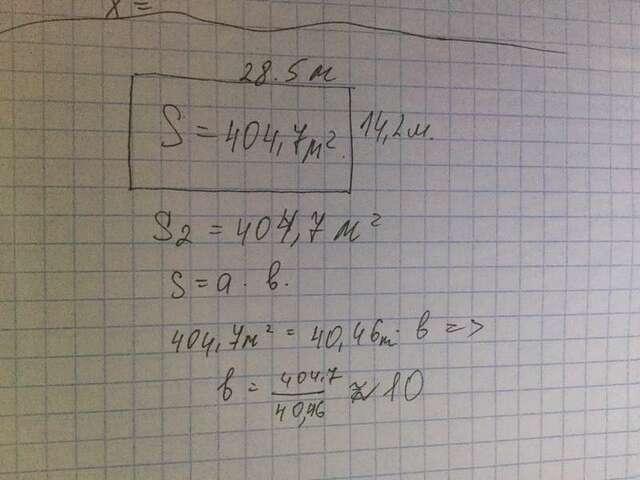 x =
28.5 м
S = 404,7 м².
14,2 м.
S₂ = 404,7 м²
S = a · в.
404,7 м² = 40,46 m · в =>
в = 404,7 / 40,46 ≈ 10